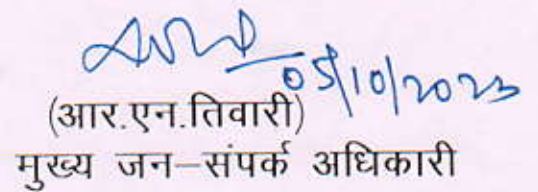 05/10/2023
(आर.एन.तिवारी)
मुख्य जन–संपर्क अधिकारी